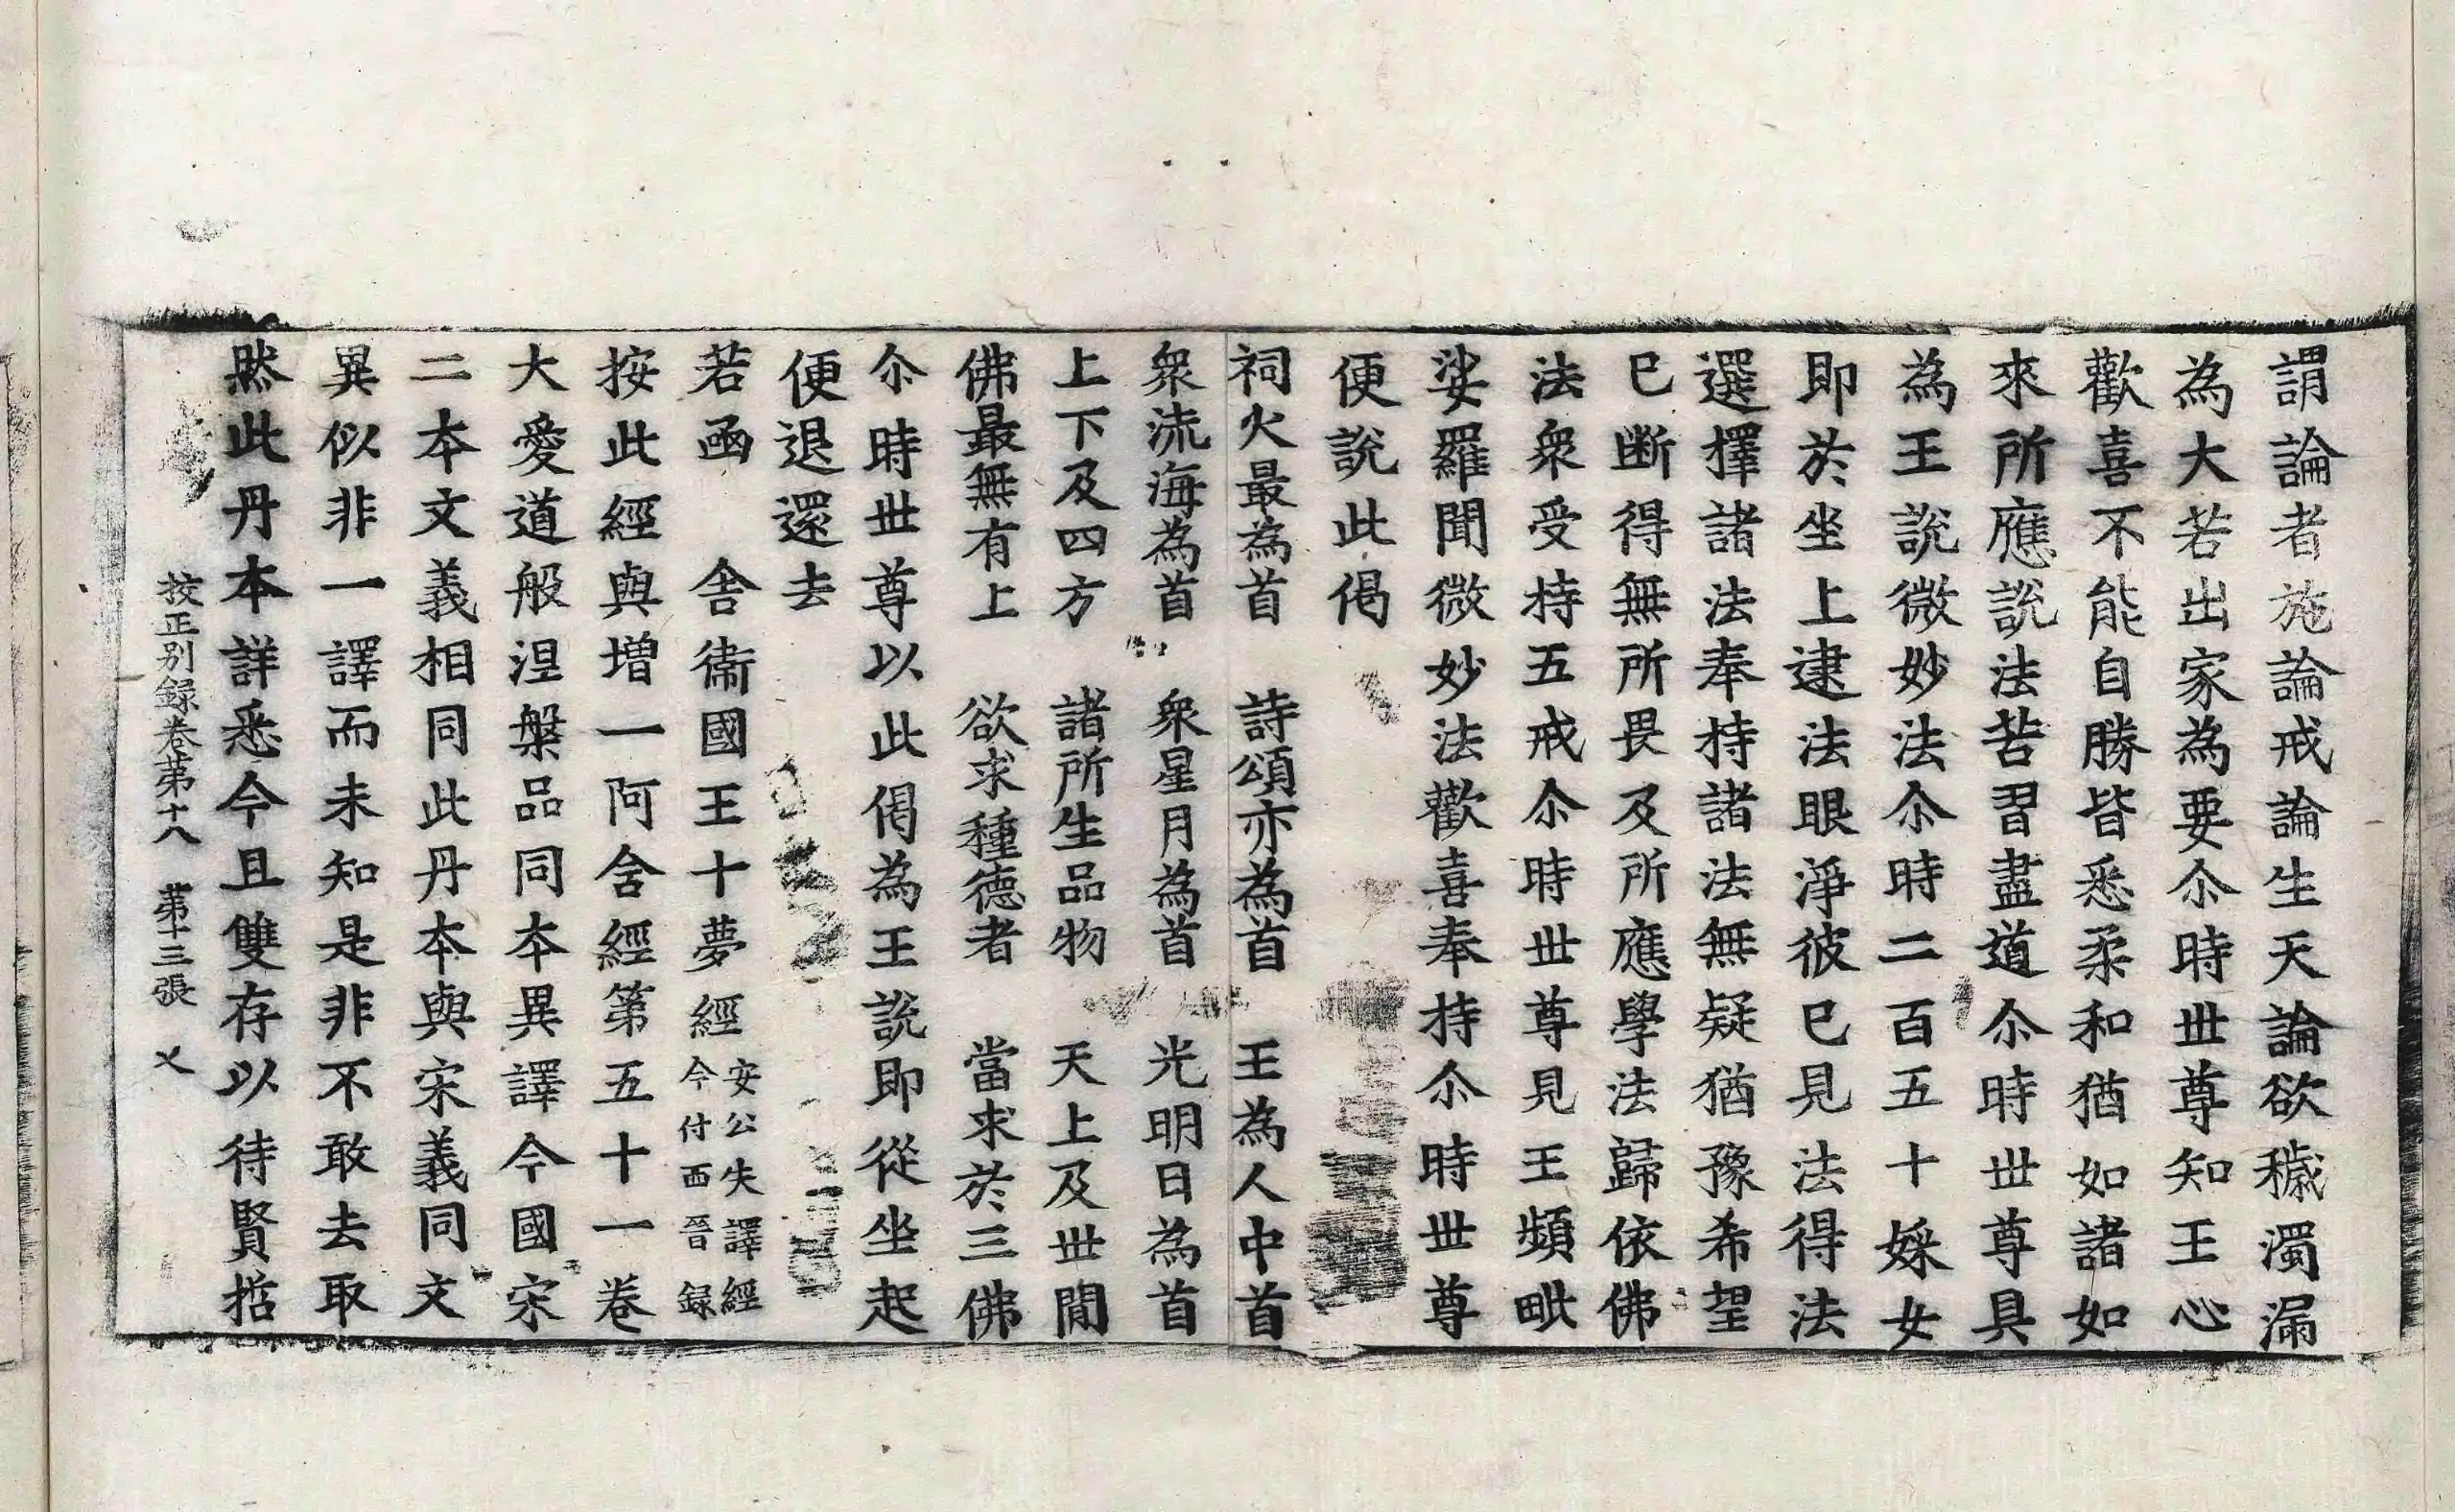 謂論者施論戒論生天論欲穢濁漏
為大若出家為要尒時世尊知王心
歡喜不能自勝皆悉柔和猶如諸如
來所應說法苦習盡道尒時世尊具
為王說微妙法尒時二百五十婇女
即於坐上逮法眼淨彼已見法得法
選擇諸法奉持諸法無疑猶豫希望
已斷得無所畏及所應學法歸依佛
法衆受持五戒尒時世尊見王頻毗
娑羅聞微妙法歡喜奉持尒時世尊
便說此偈
祠火最為首　詩頌亦為首　王為人中首
衆流海為首　衆星月為首　光明日為首
上下及四方　諸所生品物　天上及世間
佛最無有上　欲求種德者　當求於三佛
尒時世尊以此偈為王說即從坐起
便退還去
若函　舍衞國王十夢經安公失譯經今付西晉録
按此經與增一阿含經第五十一卷
大愛道般涅槃品同本異譯今國宋
二本文義相同此丹本與宋義同文
異似非一譯而未知是非不敢去取
然此丹本詳悉今且雙存以待賢哲
挍正別録卷第十八　第十三張　乂